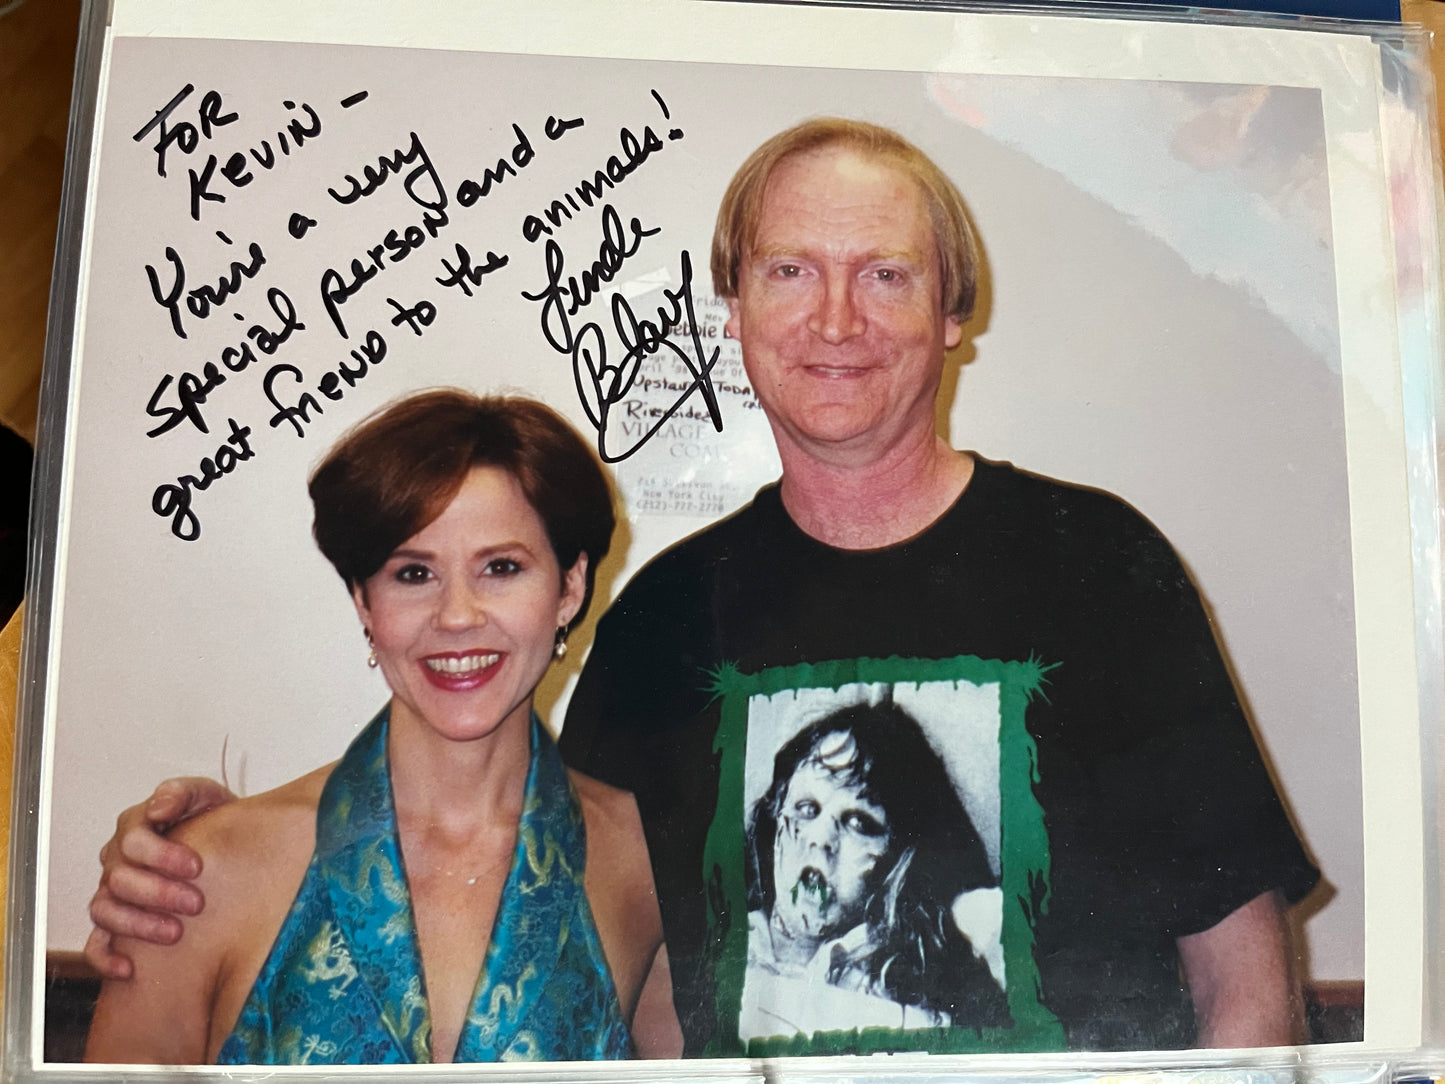 FOR
KEVIN -
You're a very
special person and a
great friend to the animals!
Linda
Blair
Frida
Debbie
April '98
Upstairs TODA
Riversides
VILLAGE
COM
New York City
(212)-777-2776